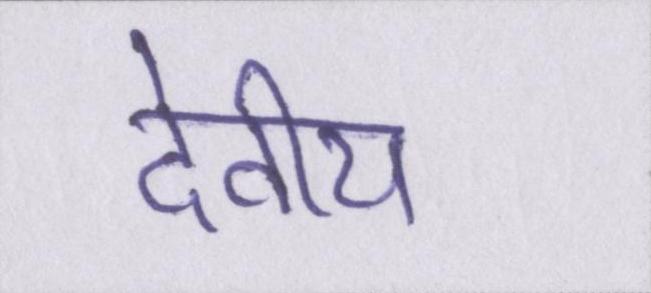 देवीय